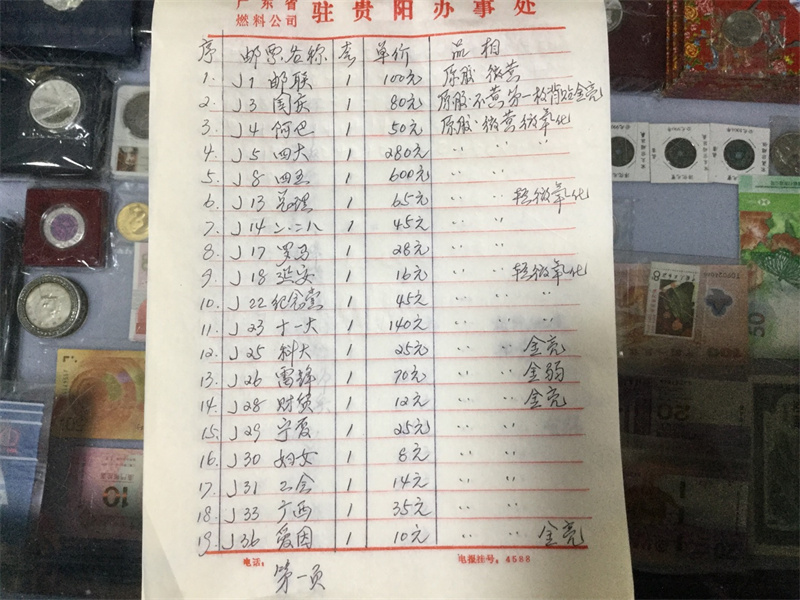 广东省
燃料公司 驻贵阳办事处
序 邮票名称 套 单价 品相
1. J1 邮联 1 100元 原胶 微黄
2. J3 国庆 1 80元 原胶 不黄 第一枚背贴金亮
3. J4 何巴 1 50元 原胶 微黄 微氧化
4. J5 四大 1 280元 〃 〃 〃
5. J8 四五 1 600元 〃 〃
6. J13 总理 1 65元 〃 〃 轻微氧化
7. J14 二.二八 1 45元 〃 〃
8. J17 罗马 1 28元 〃 〃
9. J18 延安 1 16元 〃 〃 轻微氧化
10. J22 纪念堂 1 45元 〃 〃 〃
11. J23 十一大 1 140元 〃 〃 〃
12. J25 科大 1 25元 〃 〃 金亮
13. J26 雷锋 1 70元 〃 〃 金弱
14. J28 财贸 1 12元 〃 〃 金亮
15. J29 宁夏 1 25元 〃 〃
16. J30 妇女 1 8元 〃 〃
17. J31 工会 1 14元 〃 〃
18. J33 广西 1 35元 〃 〃
19. J36 爱因 1 10元 〃 〃 金亮
电话: 电报挂号: 4588
第一页
10
20
50
100